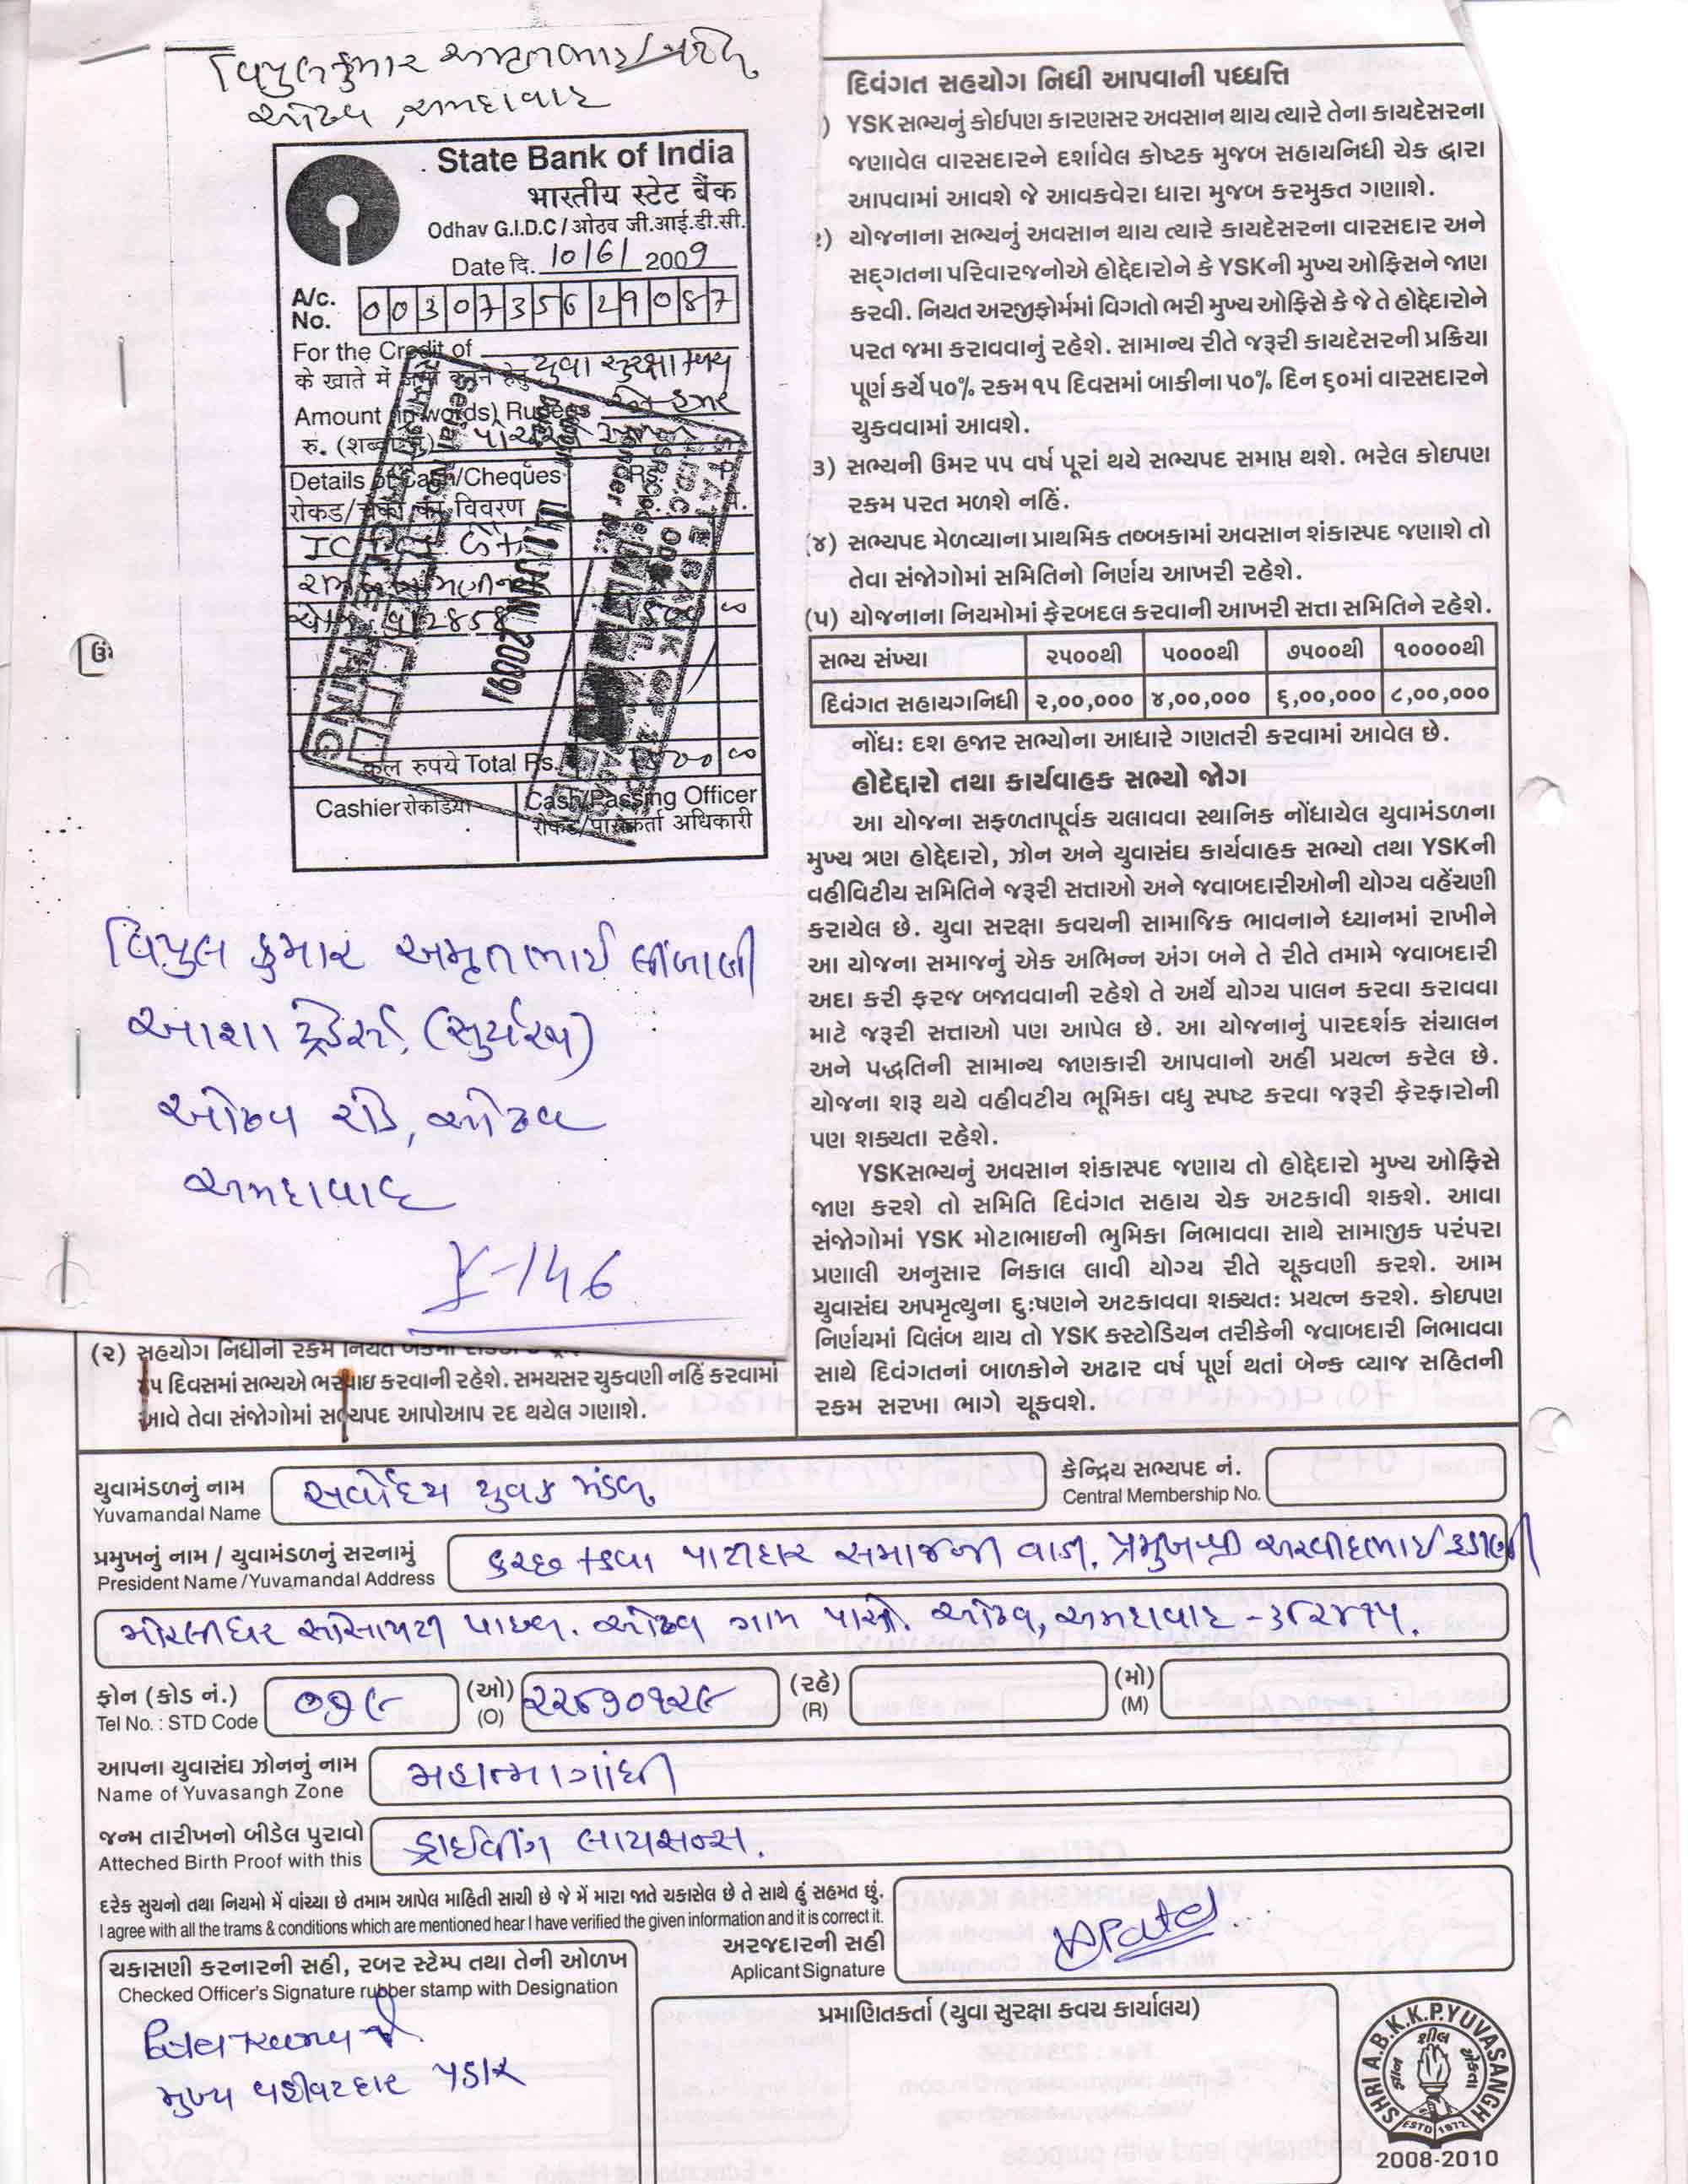 વિપુલકુમાર અમૃતભાઈ
ઓઢવ, અમદાવાદ
State Bank of India
भारतीय स्टेट बैंक
Odhav G.I.D.C / ओठव जी.आई.डी.सी.
Date दि. 10/6/ 2009
A/c. No. 0030735629087
For the Credit of યુવા સુરક્ષા કવચ
के खाते में जमा करने हेतु
Amount (in words) Rupees
रु. (शब्दों में)
Details of Cash/Cheques Rs. P.
रोकड/चेकों का विवरण
11 JUN 2009
कुल रुपये Total Rs.
Cashier रोकडिया
Cash/Passing Officer
रोकड/पासकर्ता अधिकारी
વિપુલ કુમાર અમૃતભાઈ લીંબાણી
આશા ટ્રેડર્સ, (સુર્યરથ)
ઓઢવ રોડ, ઓઢવ
અમદાવાદ
Y-146
(૨) સહયોગ નિધીની રકમ નિયત
૧૫ દિવસમાં સભ્યએ ભરપાઇ કરવાની રહેશે. સમયસર ચુકવણી નહિં કરવામાં
આવે તેવા સંજોગોમાં સભ્યપદ આપોઆપ રદ થયેલ ગણાશે.
દિવંગત સહયોગ નિધી આપવાની પધ્ધતિ
) YSK સભ્યનું કોઈપણ કારણસર અવસાન થાય ત્યારે તેના કાયદેસરના
જણાવેલ વારસદારને દર્શાવેલ કોષ્ટક મુજબ સહાયનિધી ચેક દ્વારા
આપવામાં આવશે જે આવકવેરા ધારા મુજબ કરમુકત ગણાશે.
૨) યોજનાના સભ્યનું અવસાન થાય ત્યારે કાયદેસરના વારસદાર અને
સદ્‌ગતના પરિવારજનોએ હોદ્દેદારોને કે YSKની મુખ્ય ઓફિસને જાણ
કરવી. નિયત અરજીફોર્મમાં વિગતો ભરી મુખ્ય ઓફિસે કે જે તે હોદ્દેદારોને
પરત જમા કરાવવાનું રહેશે. સામાન્ય રીતે જરૂરી કાયદેસરની પ્રક્રિયા
પૂર્ણ કર્યે ૫૦% રકમ ૧૫ દિવસમાં બાકીના ૫૦% દિન ૬૦માં વારસદારને
ચુકવવામાં આવશે.
૩) સભ્યની ઉમર ૫૫ વર્ષ પૂરાં થયે સભ્યપદ સમાપ્ત થશે. ભરેલ કોઇપણ
રકમ પરત મળશે નહિં.
(૪) સભ્યપદ મેળવ્યાના પ્રાથમિક તબ્બકામાં અવસાન શંકાસ્પદ જણાશે તો
તેવા સંજોગોમાં સમિતિનો નિર્ણય આખરી રહેશે.
(૫) યોજનાના નિયમોમાં ફેરબદલ કરવાની આખરી સત્તા સમિતિને રહેશે.
સભ્ય સંખ્યા ૨૫૦૦થી ૫૦૦૦થી ૭૫૦૦થી ૧૦૦૦૦થી
દિવંગત સહાયગનિધી ૨,૦૦,૦૦૦ ૪,૦૦,૦૦૦ ૬,૦૦,૦૦૦ ૮,૦૦,૦૦૦
નોંધ: દશ હજાર સભ્યોના આધારે ગણતરી કરવામાં આવેલ છે.
હોદેદ્દારો તથા કાર્યવાહક સભ્યો જોગ
આ યોજના સફળતાપૂર્વક ચલાવવા સ્થાનિક નોંધાયેલ યુવામંડળના
મુખ્ય ત્રણ હોદ્દેદારો, ઝોન અને યુવાસંઘ કાર્યવાહક સભ્યો તથા YSKની
વહીવિટીય સમિતિને જરૂરી સત્તાઓ અને જવાબદારીઓની યોગ્ય વહેંચણી
કરાયેલ છે. યુવા સરક્ષા કવચની સામાજિક ભાવનાને ધ્યાનમાં રાખીને
આ યોજના સમાજનું એક અભિન્ન અંગ બને તે રીતે તમામે જવાબદારી
અદા કરી ફરજ બજાવવાની રહેશે તે અર્થે યોગ્ય પાલન કરવા કરાવવા
માટે જરૂરી સત્તાઓ પણ આપેલ છે. આ યોજનાનું પારદર્શક સંચાલન
અને પદ્ધતિની સામાન્ય જાણકારી આપવાનો અહીં પ્રયત્ન કરેલ છે.
યોજના શરૂ થયે વહીવટીય ભૂમિકા વધુ સ્પષ્ટ કરવા જરૂરી ફેરફારોની
પણ શક્યતા રહેશે.
YSKસભ્યનું અવસાન શંકાસ્પદ જણાય તો હોદ્દેદારો મુખ્ય ઓફિસે
જાણ કરશે તો સમિતિ દિવંગત સહાય ચેક અટકાવી શકશે. આવા
સંજોગોમાં YSK મોટાભાઇની ભુમિકા નિભાવવા સાથે સામાજીક પરંપરા
પ્રણાલી અનુસાર નિકાલ લાવી યોગ્ય રીતે ચૂકવણી કરશે. આમ
યુવાસંઘ અપમૃત્યુના દુઃષણને અટકાવવા શક્યતઃ પ્રયત્ન કરશે. કોઇપણ
નિર્ણયમાં વિલંબ થાય તો YSK કસ્ટોડિયન તરીકેની જવાબદારી નિભાવવા
સાથે દિવંગતનાં બાળકોને અઢાર વર્ષ પૂર્ણ થતાં બેન્ક વ્યાજ સહિતની
રકમ સરખા ભાગે ચૂકવશે.
યુવામંડળનું નામ સર્વોદય યુવક મંડળ
Yuvamandal Name
કેન્દ્રિય સભ્યપદ નં.
Central Membership No.
પ્રમુખનું નામ / યુવામંડળનું સરનામું કચ્છ કડવા પાટીદાર સમાજની વાડી, પ્રમુખશ્રી અરવીંદભાઈ રૂડાણી
President Name /Yuvamandal Address
મોરલીધર સોસાયટી પાછળ. ઓઢવ ગામ પાસે. ઓઢવ, અમદાવાદ -૩૮૨૪૧૫.
ફોન (કોડ નં.) ૦૭૯ (ઓ) ૨૨૮૭૦૧૨૯ (રહે) (મો)
Tel No. : STD Code (O) (R) (M)
આપના યુવાસંઘ ઝોનનું નામ મહાત્માગાંધી
Name of Yuvasangh Zone
જન્મ તારીખનો બીડેલ પુરાવો ડ્રાઈવીંગ લાયસન્સ.
Atteched Birth Proof with this
દરેક સુચનો તથા નિયમો મેં વાંચ્યા છે તમામ આપેલ માહિતી સાચી છે જે મેં મારા જાતે ચકાસેલ છે તે સાથે હું સહમત છું.
I agree with all the trams & conditions which are mentioned hear I have verified the given information and it is correct it.
અરજદારની સહી
Aplicant Signature
ચકાસણી કરનારની સહી, રબર સ્ટેમ્પ તથા તેની ઓળખ
Checked Officer's Signature rubber stamp with Designation
મુખ્ય વહીવટદાર
પ્રમાણિતકર્તા (યુવા સુરક્ષા કવચ કાર્યાલય)
SHRI A.B.K.K.P.YUVASANGH
ESTD 1972
2008-2010